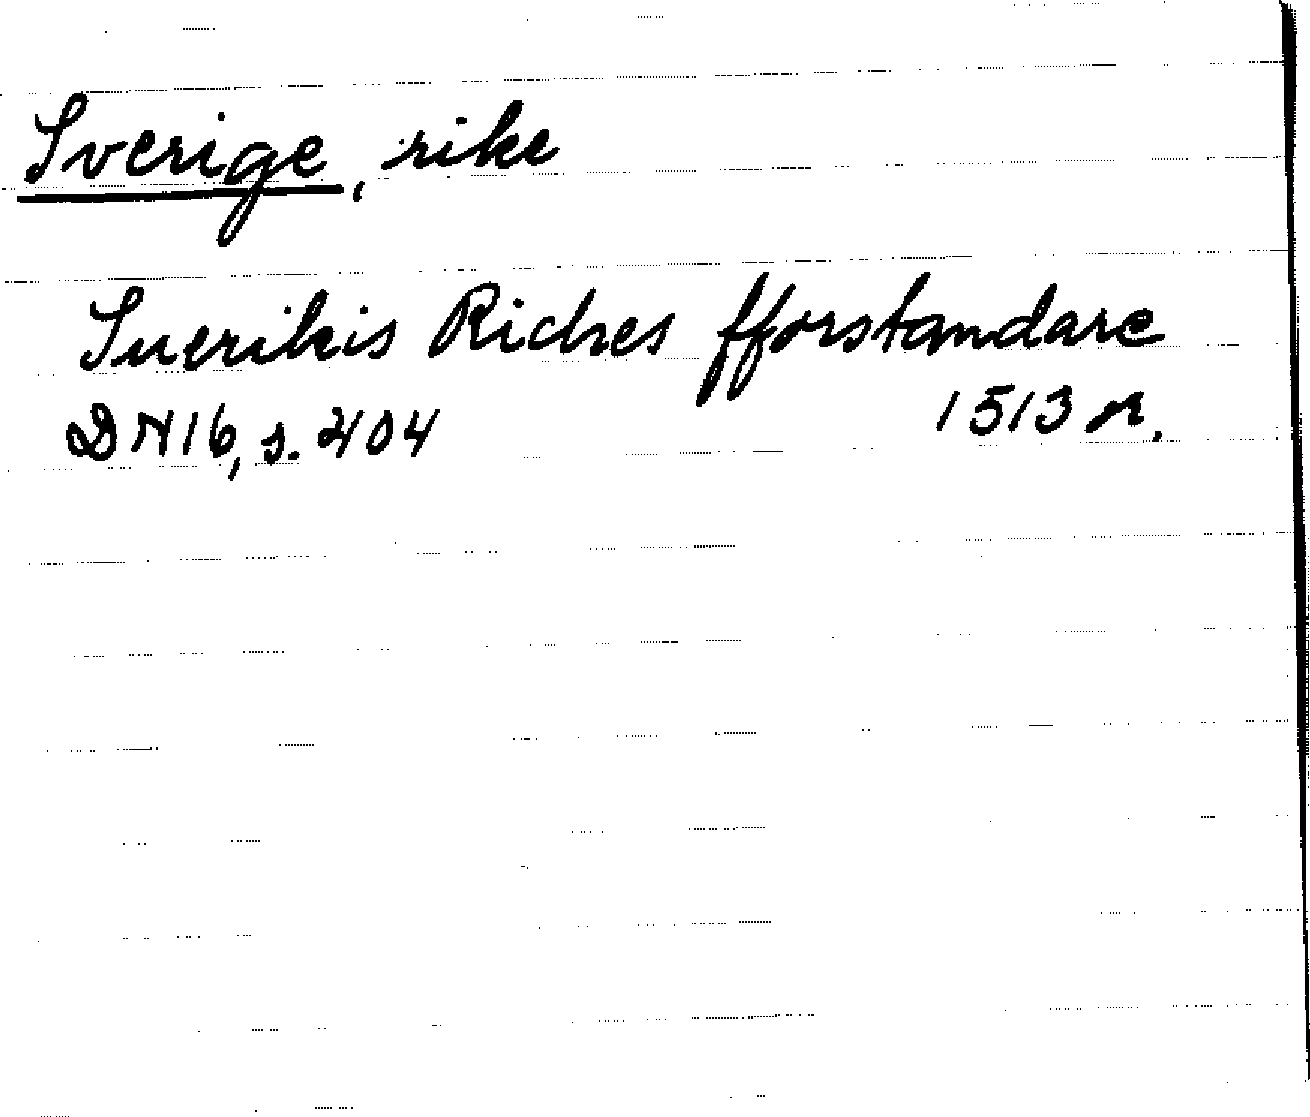 Sverige, rike
Suerikis Riches fforstandare
DN16, s. 404 1513 or.